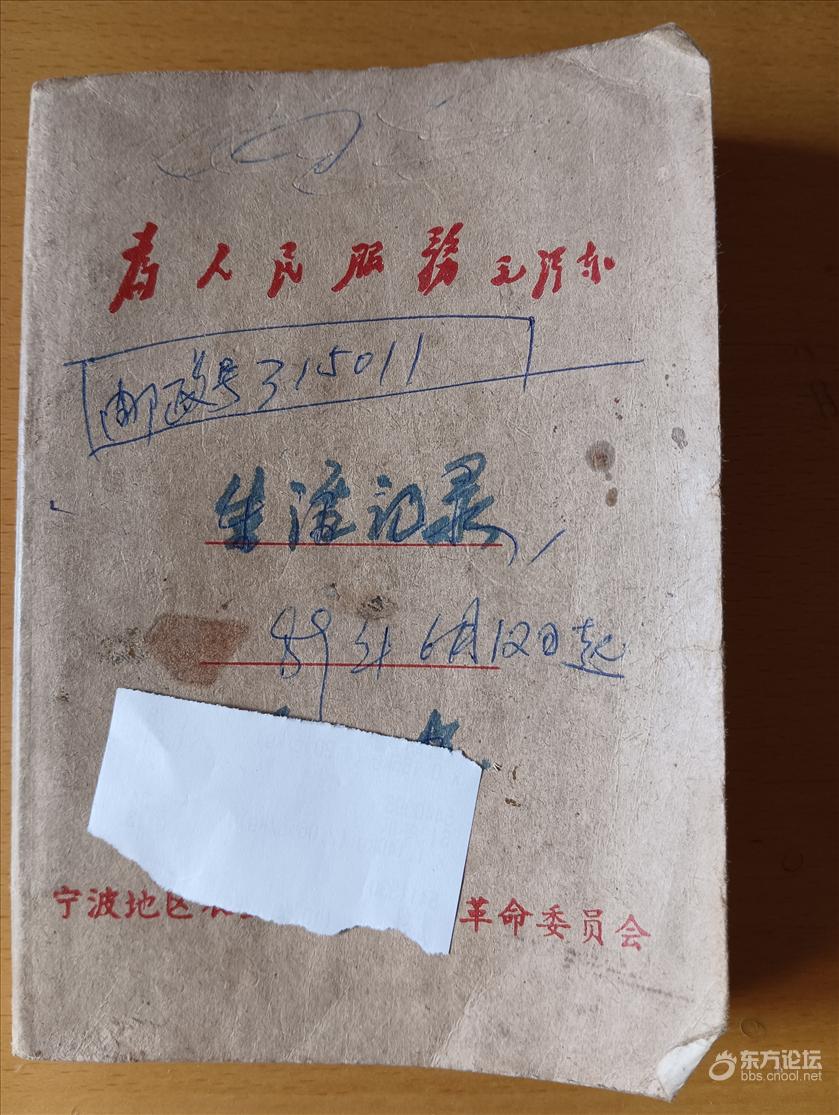 为人民服务 毛泽东
邮政号315011
生活记录
89年6月12日起
宁波地区农
革命委员会
东方论坛
bbs.cnool.net